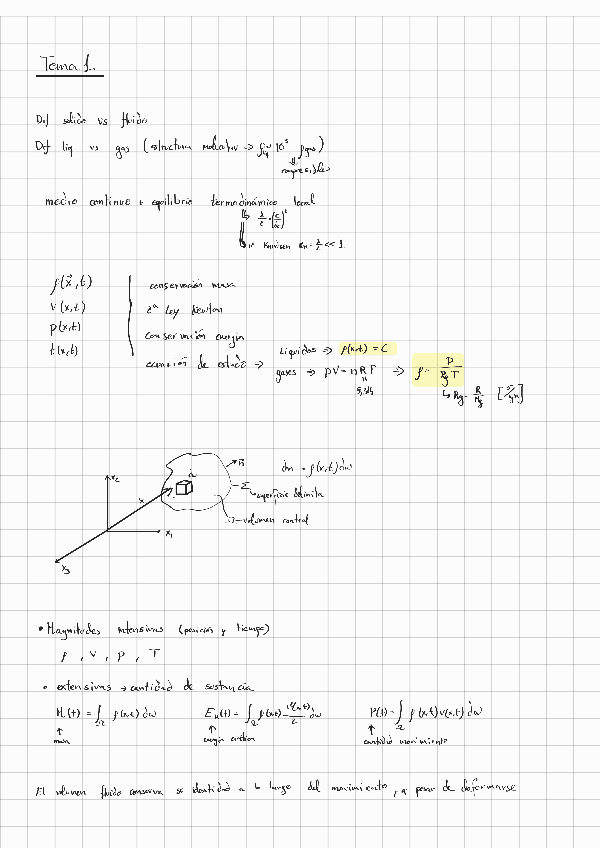 Tema 1.
Def solido vs fluido
Def liq vs gas (structura molecular → ρliq ~ 10³ ρgas)
compresibles
medio continuo + equilibrio termodinámico local
Knudsen Kn = λ/L << 1
ρ(x⃗,t)
conservación masa
v(x,t)
2ª Ley Newton
p(x,t)
conservación energía
t(x,t)
ecuación de estado →
Liquidos → ρ(x,t) = C
gases → pV = nRT → ρ = p / Rg T
8,314
↳ Rg = R/Mg
x₂
x
x₁
x₃
n⃗
dm = ρ(x,t) dω
Σ → superficie delimita
Ω → volumen control
• Magnitudes intensivas (posición y tiempo)
ρ , v , p , T
• extensivas → cantidad de sustancia
M(t) = ∫Ω ρ(x,t) dω
↑
masa
↑
energía cinética
P(t) = ∫Ω ρ(x,t) v(x,t) dω
↑
cantidad movimiento
El volumen fluido conserva su identidad a lo largo del movimiento, a pesar de deformarse